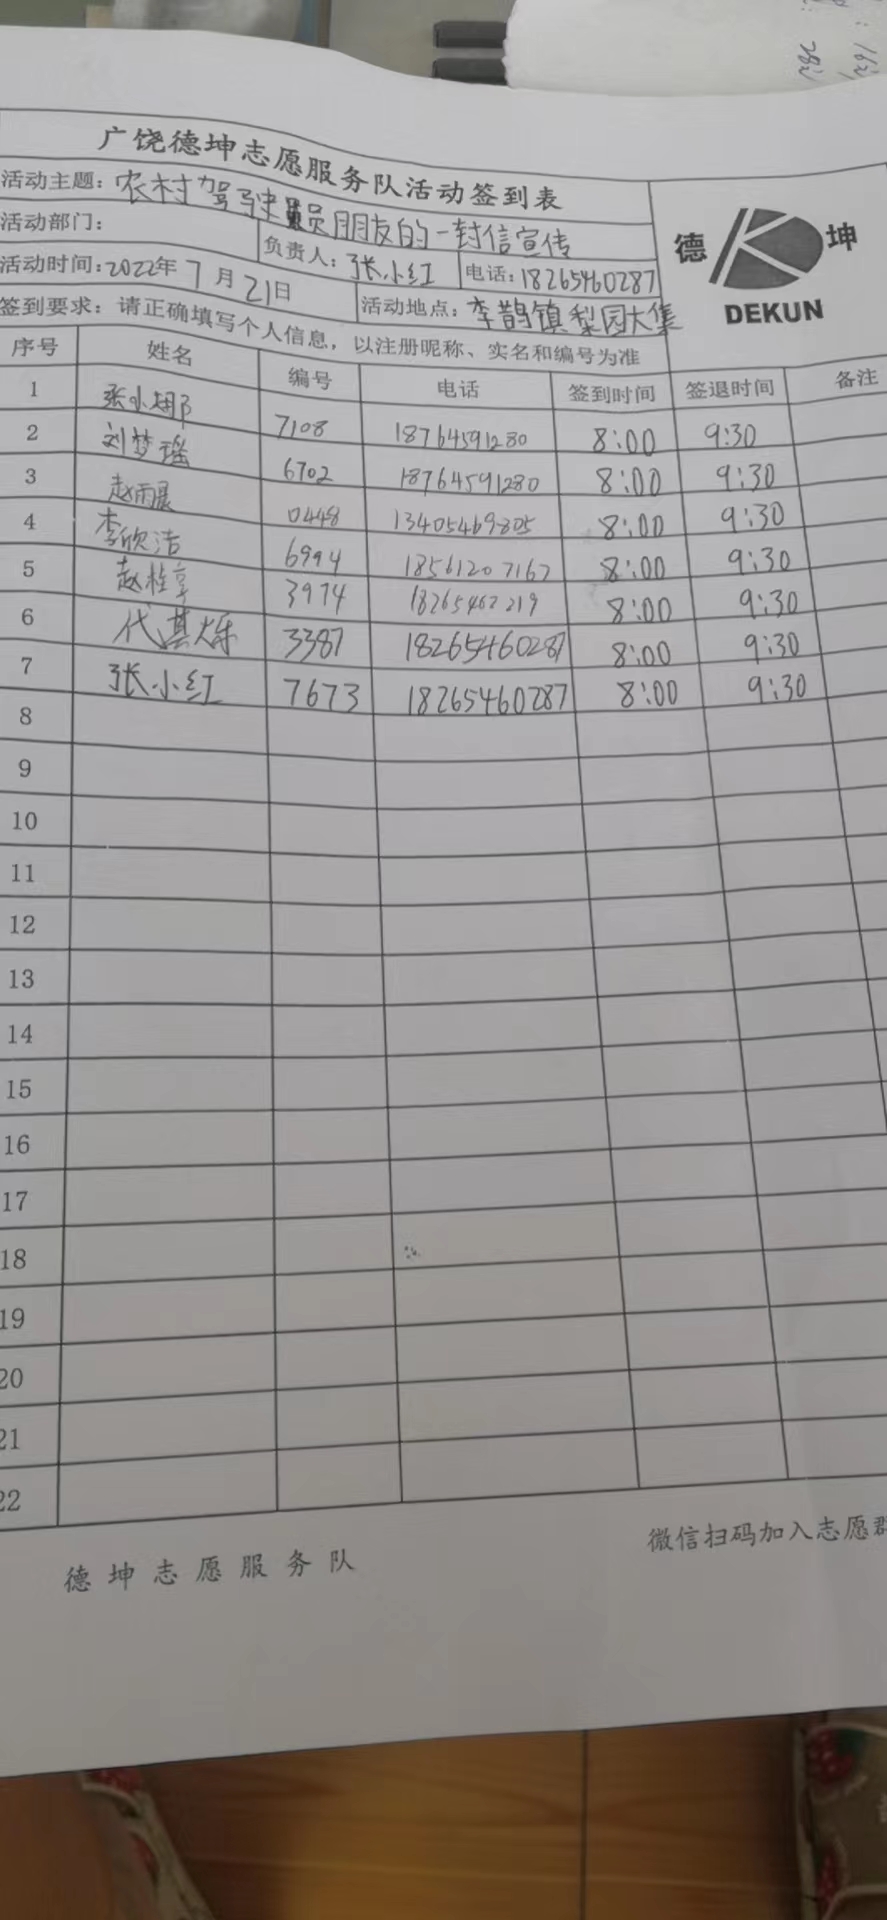 广饶德坤志愿服务队活动签到表
活动主题：农村驾驶员朋友的一封信宣传
活动部门： 负责人：张小红 电话：18265460287
活动时间：2022年7月21日 活动地点：李鹊镇梨园大集
签到要求：请正确填写个人信息，以注册昵称、实名和编号为准
德 坤
DEKUN
序号 姓名 编号 电话 签到时间 签退时间 备注
1 张小娜 7108 18764591280 8:00 9:30
2 刘梦瑶 6702 18764591280 8:00 9:30
3 赵雨晨 0448 13405469805 8:00 9:30
4 李欣洁 6994 18561207167 8:00 9:30
5 赵桂享 3974 18265462219 8:00 9:30
6 代其烁 3387 18265460287 8:00 9:30
7 张小红 7673 18265460287 8:00 9:30
8
9
10
11
12
13
14
15
16
17
18
19
20
21
22
德坤志愿服务队
微信扫码加入志愿群